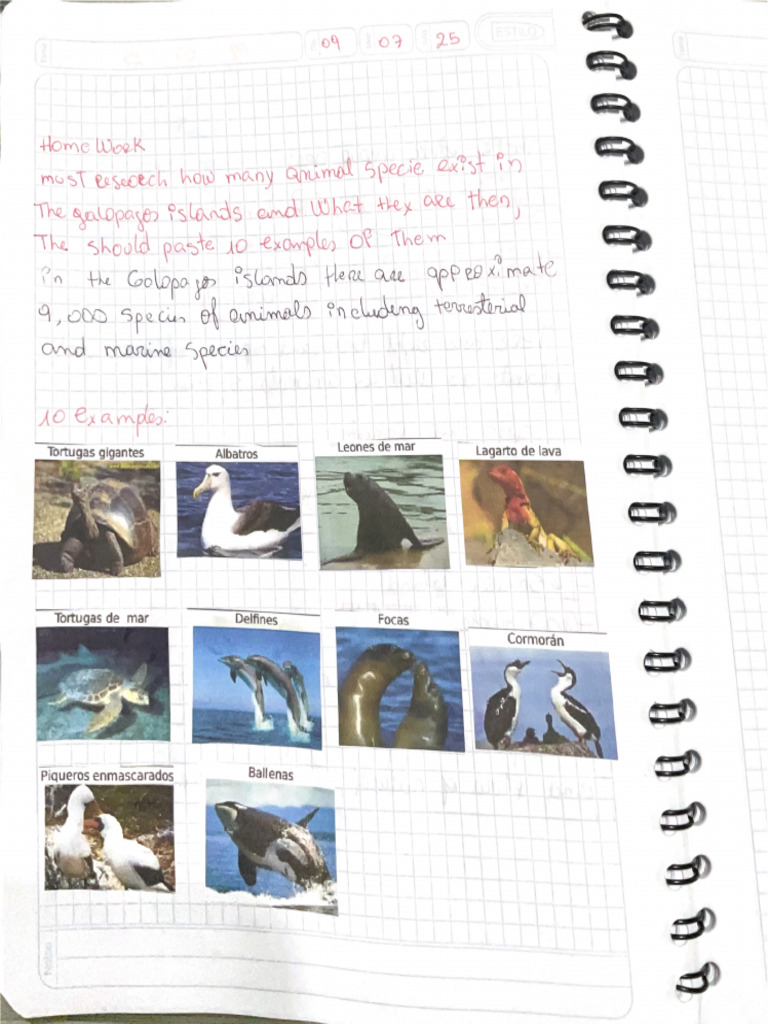 09 07 25 ESTILO
Home Work
most research how many animal specie exist in
The galapagos islands and what they are then,
The should paste 10 examples of them
in the Galapagos islands there are approximate
9,000 species of animals including terresterial
and marine species
10 examples:
Tortugas gigantes Albatros Leones de mar Lagarto de lava
Tortugas de mar Delfines Focas Cormorán
Piqueros enmascarados Ballenas